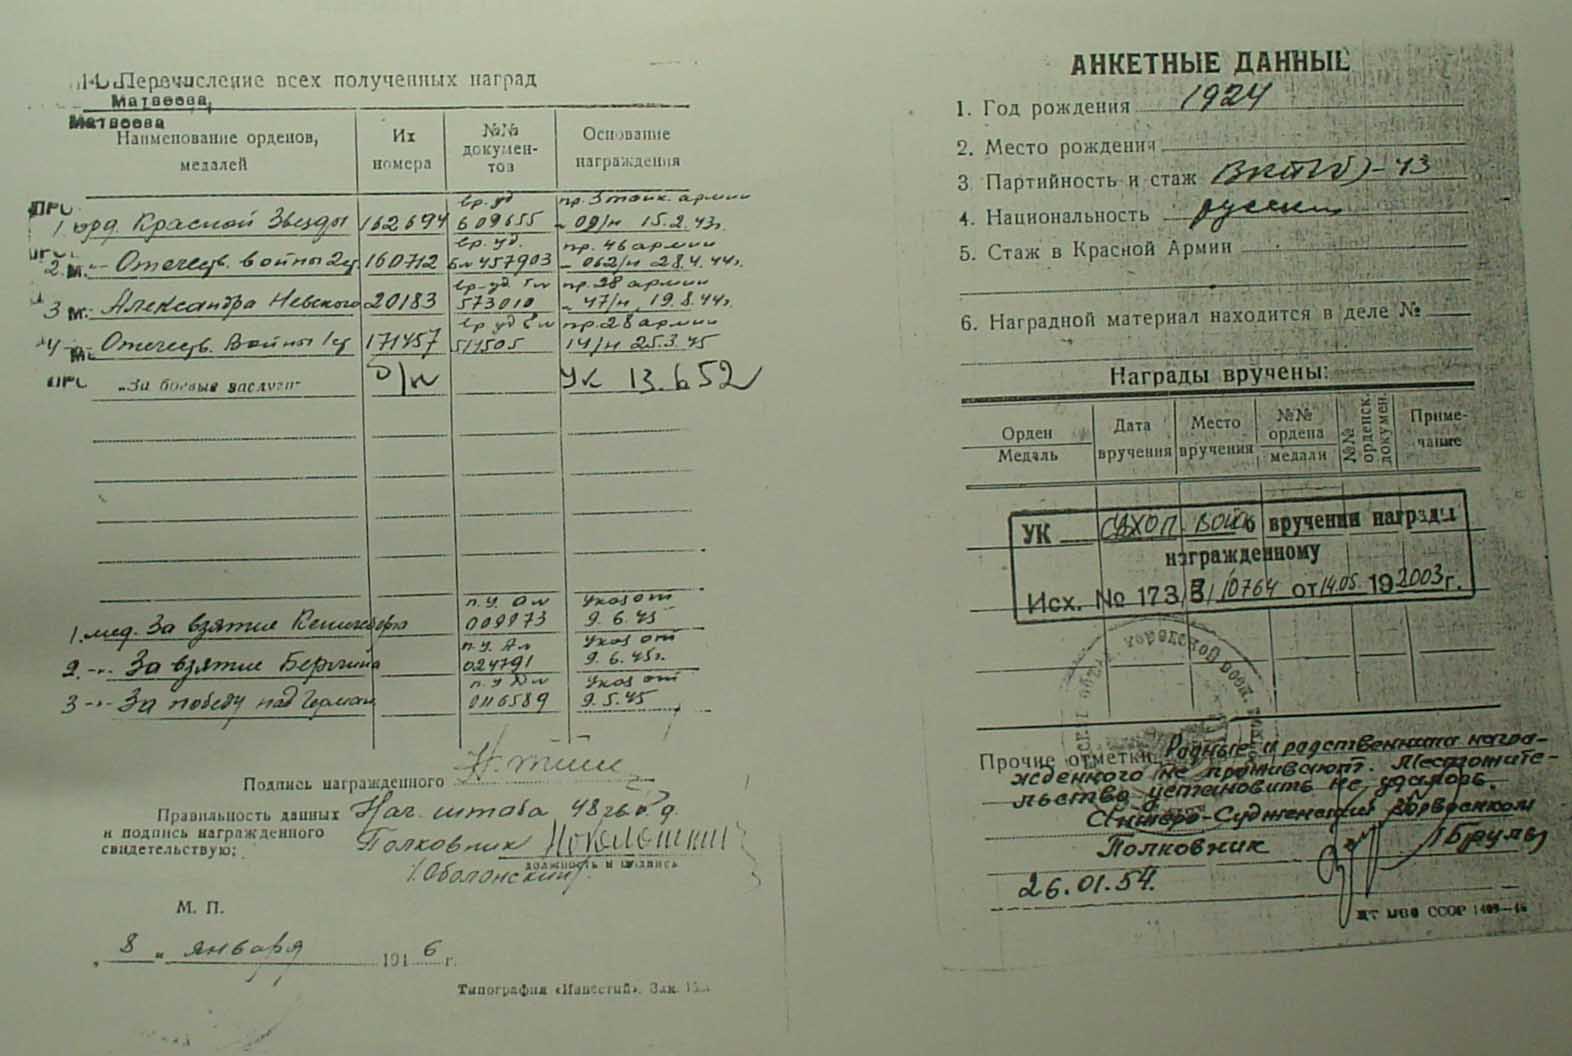 14. Перечисление всех полученных наград
Матвеева,
Матвеева
Наименование орденов, медалей
Их номера
№№ докумен-тов
Основание награждения
вр. уд пр. 5 танк. армии
1. орд. Красной Звезды 162694 609655 09/н 15.2.43г.
вр. уд. пр. 46 армии
2. м. -"- Отечеств. войны 2 ст. 160712 457903 062/н 28.4.44г.
вр. уд пр. 28 армии
3 м. -"- Александра Невского 20183 573010 47/н 19.8.44г.
вр. уд пр. 28 армии
4 -"- Отечеств. Войны 1 ст 171457 511505 14/н 25.3.45
„За боевые заслуги“ б/н УК 13.6.52
п. у. Указ от
1. мед. За взятие Кенигсберга 009973 9.6.45
п. у. Указ от
2. -"- За взятие Берлина 024791 9.6.45г.
п. у. Указ от
3 -"- За победу над Герман. 0116589 9.5.45
Подпись награжденного
Правильность данных Нач. штаба 48
и подпись награжденного Полковник
свидетельствую:
должность и подпись
/Оболонский/
М. П.
„ 8 “ января 1946 г.
Типография «Известий». Зак.
АНКЕТНЫЕ ДАННЫЕ
1. Год рождения 1924
2. Место рождения
3 Партийность и стаж ВКП(б)-43
4. Национальность русский
5. Стаж в Красной Армии
6. Наградной материал находится в деле №
Награды вручены:
Орден
Медаль
Дата вручения
Место вручения
№№ ордена медали
№№ орденск. докумен.
Приме-чание
УК СУХОП. ВОЙСК о вручении награды
награжденному
Исх. № 173/3/10764 от 14.05. 19 2003г.
Прочие отметки Родные и родственники награ-
жденного не проживают. Местожите-
льство установить не удалось.
Анжеро-Судженский горвоенком
Полковник
26.01.54.